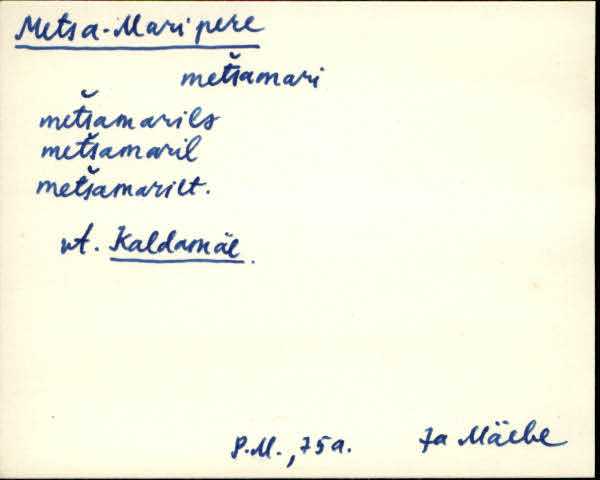 Metsa-Mari pere
metšamari
metšamarils
metšamaril
metšamarilt.
vt. Kaldamäe.
P.M., 75a. Ja Mäebe